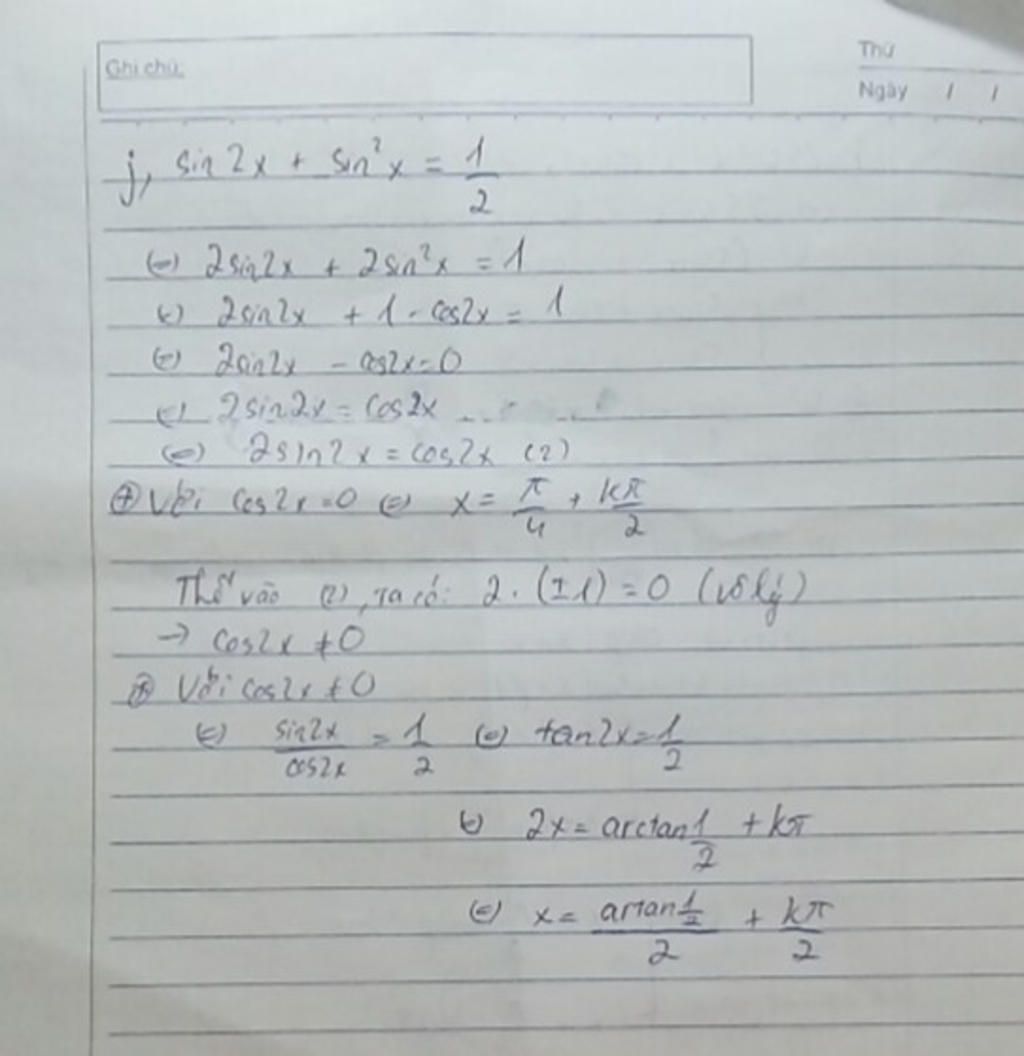 Ghi chú:
Thứ
Ngày / /
j, sin 2x + sin²x = 1/2
⇔ 2sin2x + 2sin²x = 1
⇔ 2sin2x + 1 - cos2x = 1
⇔ 2sin2x - cos2x = 0
⇔ 2sin2x = cos2x
⇔ 2sin2x = cos2x (2)
⊕ Với cos2x = 0 ⇔ x = π/4 + kπ/2
Thế vào (2), ta có: 2. (±1) = 0 (vô lý)
→ cos2x ≠ 0
⊕ Với cos2x ≠ 0
⇔ sin2x/cos2x = 1/2 ⇔ tan2x = 1/2
⇔ 2x = arctan 1/2 + kπ
⇔ x = artan 1/2 / 2 + kπ/2